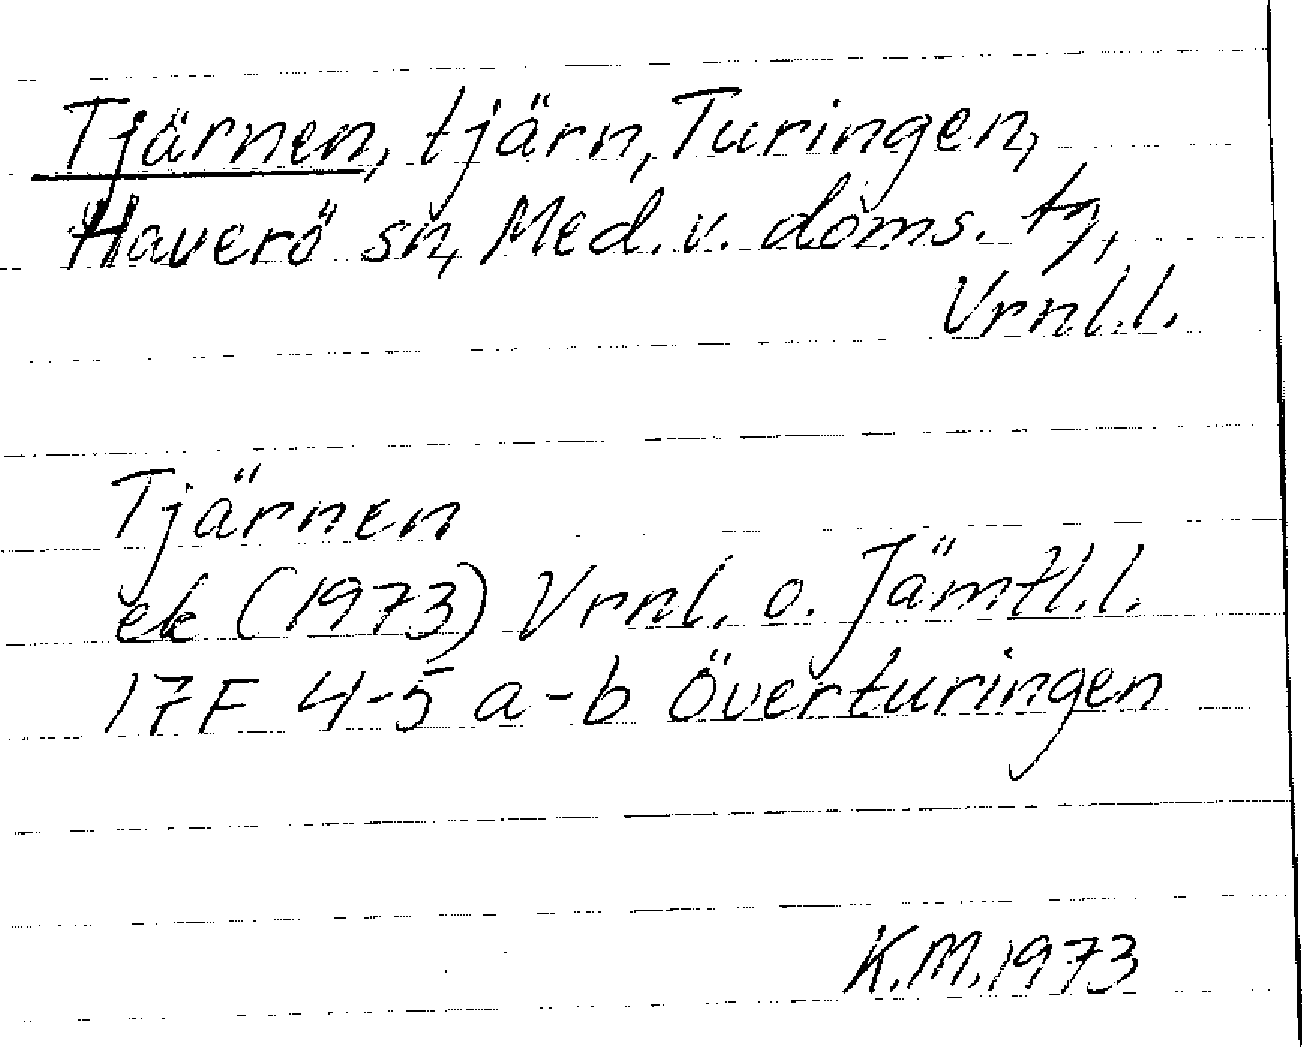 Tjärnen, tjärn, Turingen,
Haverö sn, Med. v. doms. tg,
Vrnl.l.
Tjärnen
ek (1973) Vrnl. o. Jämtl.l.
17F 4-5 a-b Överturingen
K.M. 1973